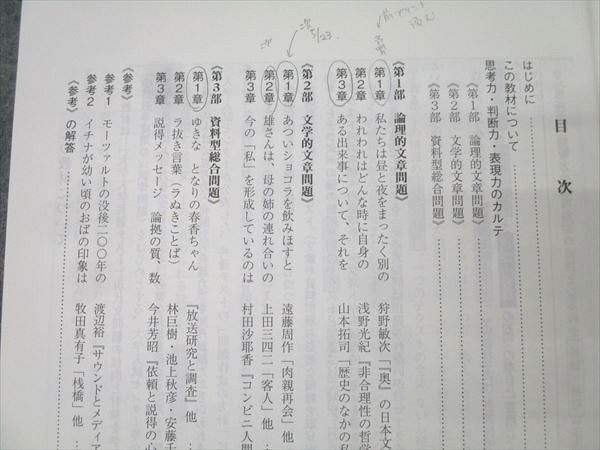 目　次
はじめに
この教材について
思考力・判断力・表現力のカルテ
《第1部　論理的文章問題》
《第2部　文学的文章問題》
《第3部　資料型総合問題》
《第1部　論理的文章問題》
第1章　私たちは昼と夜をまったく別の　狩野敏次「『奥』の日本文
第2章　われわれはどんな時に自身の　浅野光紀『非合理性の哲学
第3章　ある出来事について、それを　山本拓司「歴史のなかの私
《第2部　文学的文章問題》
第1章　あついショコラを飲みほすと　遠藤周作「肉親再会」他
第2章　雄さんは、母の姉の連れ合いの　上田三四二「客人」他
第3章　今の「私」を形成しているのは　村田沙耶香『コンビニ人間
《第3部　資料型総合問題》
第1章　ゆきな　となりの春香ちゃん　『放送研究と調査』他
第2章　ラ抜き言葉（ラぬきことば）　林巨樹・池上秋彦・安藤千
第3章　説得メッセージ　論拠の質、数　今井芳昭『依頼と説得の心
《参考》
参考1　モーツァルトの没後二〇〇年の　渡辺裕『サウンドとメディア
参考2　イチナが幼い頃のおばの印象は　牧田真有子「桟橋」他
《参考》の解答
次 5/23
次